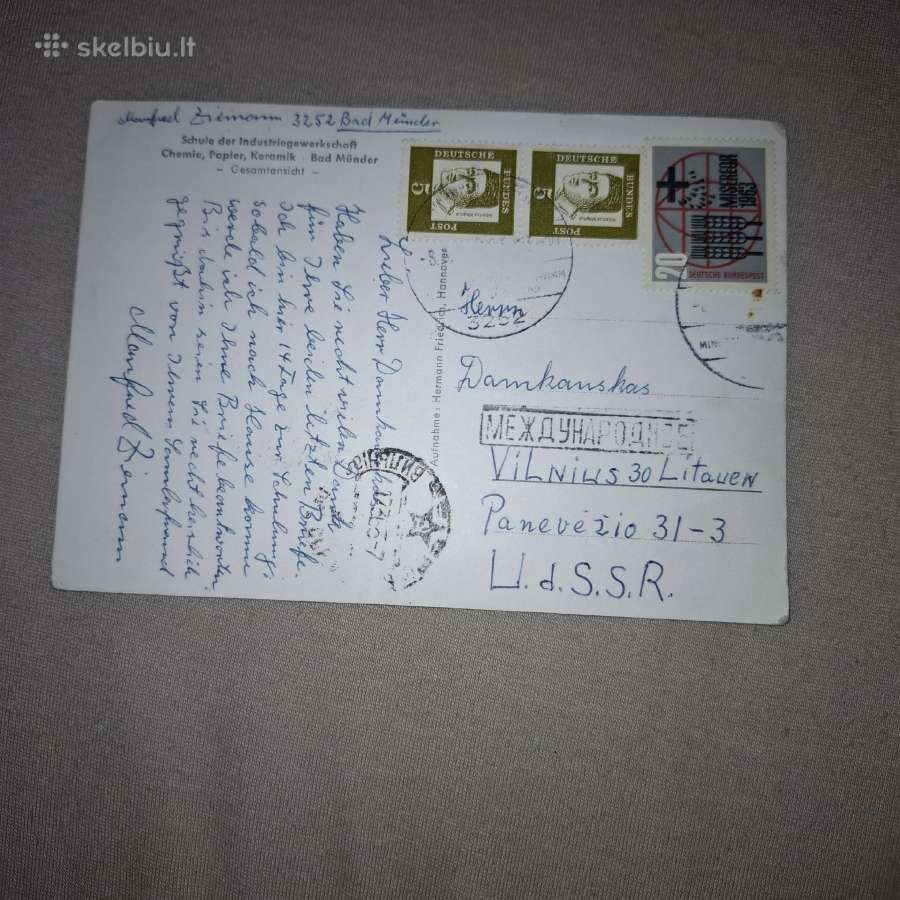 skelbiu.lt
Manfred Ziemann 3252 Bad Münder
Schule der Industriegewerkschaft
Chemie, Papier, Keramik · Bad Münder
– Gesamtansicht –
Lieber Herr Damkauskas
Haben Sie recht vielen Dank
für Ihre beiden letzten Briefe.
Ich bin hier 14 Tage zur Schulung,
sobald ich nach Hause komme
werde ich Ihre Briefe beantworten
Bis dahin seien Sie recht herzlich
gegrüßt von Ihrem
Manfred Ziemann
Aufnahme: Hermann Friedrich, Hannover
DEUTSCHE
BUNDES
POST
5
DEUTSCHE
BUNDES
POST
5
MISEREOR
1963
20
DEUTSCHE BUNDESPOST
3252
Herrn
Damkauskas
МЕЖДУНАРОДНОЕ
VILNIUS 30 Litauen
Panevėžio 31-3
U.d.S.S.R.